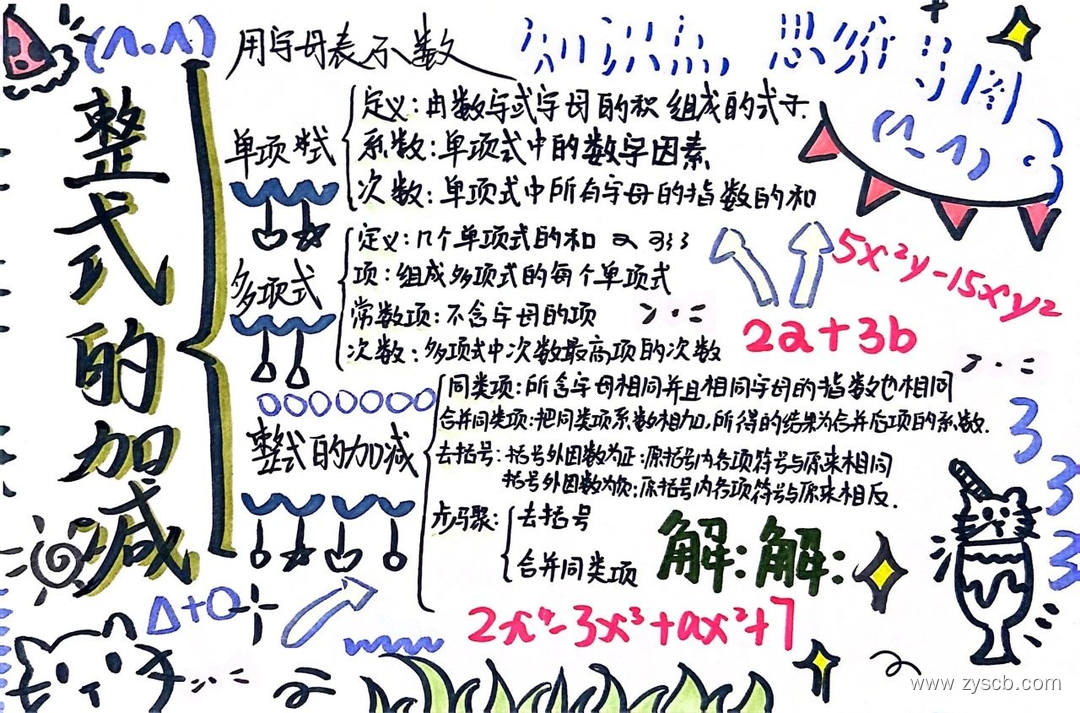 (^-^)
用字母表示数
知识点 思维导图
(^-^)
整式的加减
单项式
定义:由数与或字母的积组成的式子.
系数:单项式中的数字因素
次数:单项式中所有字母的指数的和
多项式
定义:几个单项式的和
项:组成多项式的每个单项式
常数项:不含字母的项
次数:多项式中次数最高项的次数
5x²y-15xy2
2a+3b
整式的加减
同类项:所含字母相同并且相同字母的指数也相同
合并同类项:把同类项系数相加,所得的结果为合并后项的系数.
去括号:括号外因数为正:原括号内各项符号与原来相同
括号外因数为负:原括号内各项符号与原来相反.
步骤:
去括号
合并同类项
解:解:
3
3
3
Δ+O
2x⁴-3x³+ax²+7
www.zyscb.com